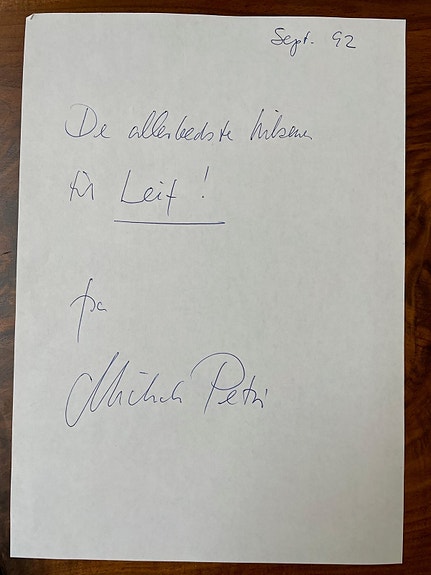 Sept. 92
De allerbedste hilsener
til Leif!
fra
Michala Petri